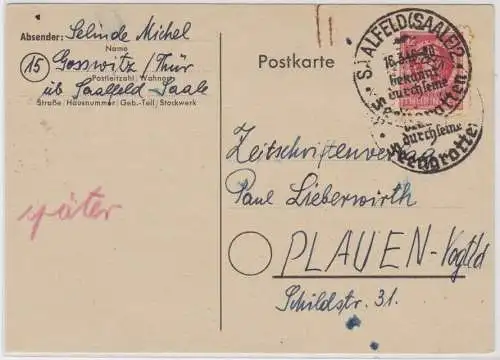 Absender: Selinde Michel
Name
15 Gosswitz/Thür
Postleitzahl/Wohnort
üb Saalfeld-Saale
Straße/Hausnummer/Geb.-Teil/Stockwerk
später
Postkarte
SAALFELD (SAALE) 2
bekannt
durch seine
Feengrotten
durch seine
Feengrotten
Zeitschriftenvertr.
Paul Lieberwirth
PLAUEN-Vogtld
Schildstr. 31.